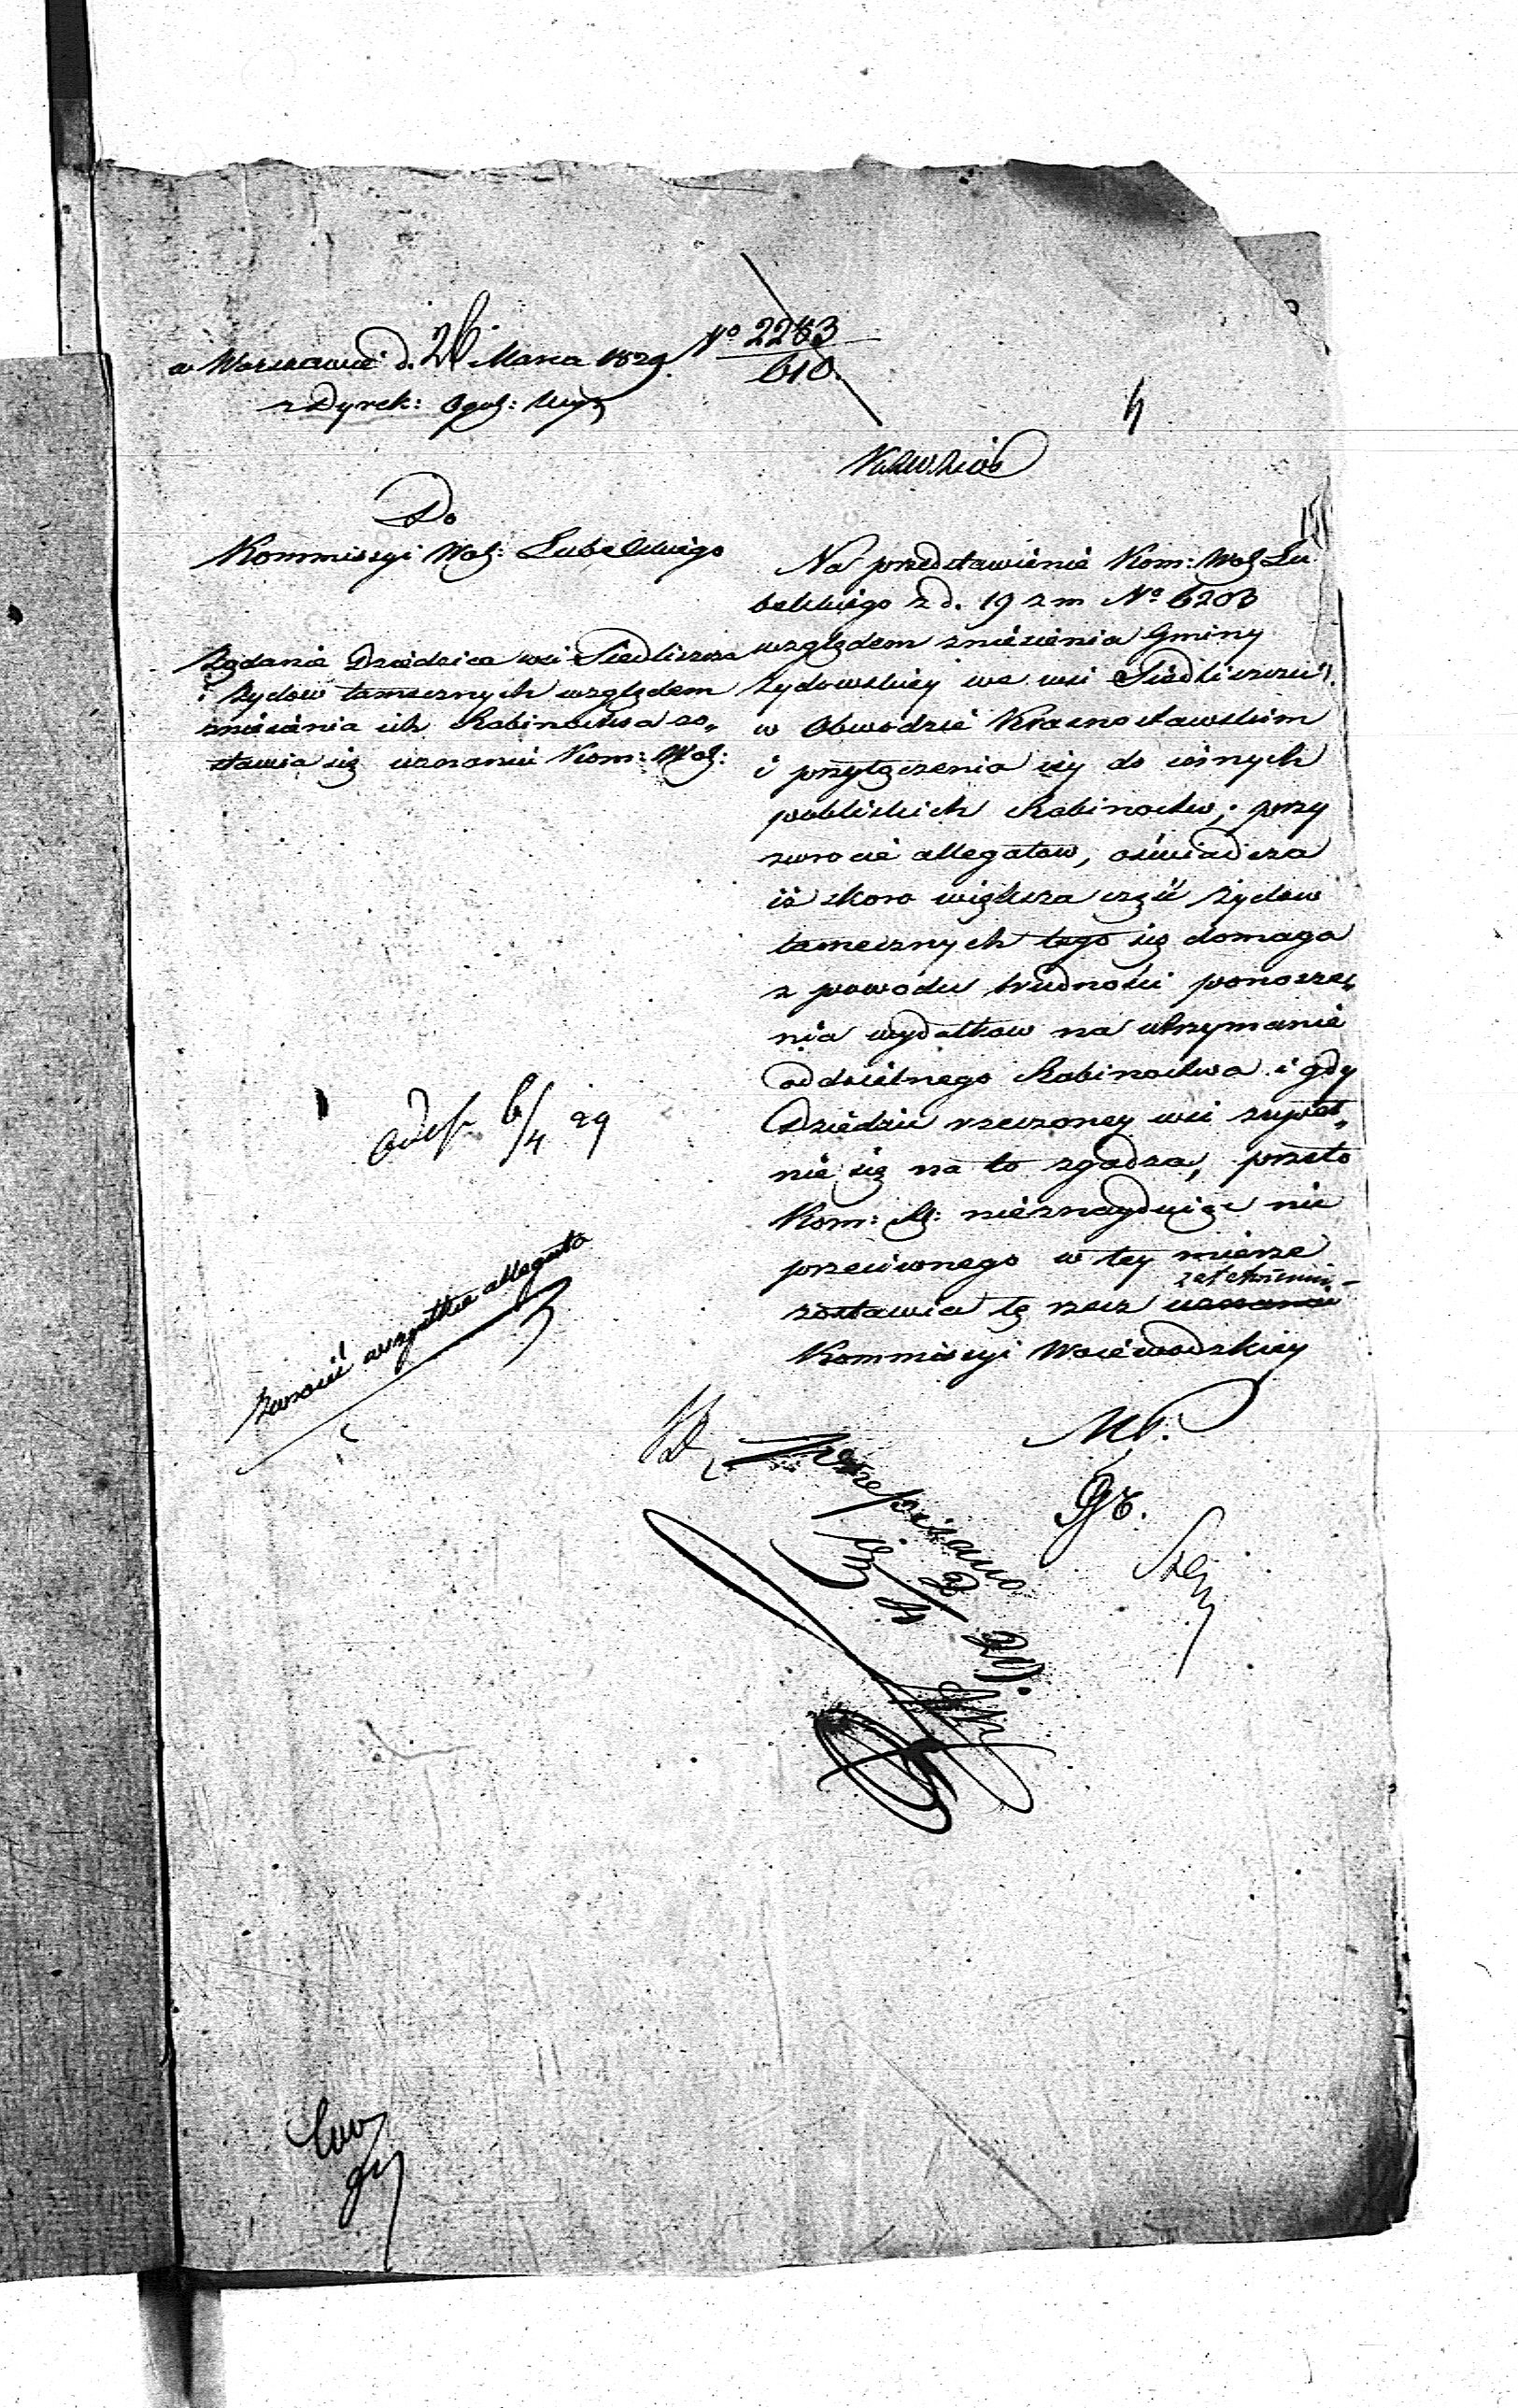 w Warszawie d. 26 Marca 1829.
z Dyrek: Ogól:
No 2253
610
4
Do
Kommissyi Woj: Lubelskiego
Żądanie Dziedzica wsi Siedliszcza
i żydow tamecznych względem
zniesienia ich Rabinostwa zo„
stawia się uznaniu Kom: Woj:
Na przedstawienie Kom: Woj. Lu
belskiego z d. 19 z m No 6203
względem zniesienia Gminy
żydowskiey we wsi Siedliszczu
w Obwodzie Krasnostawskim
i przyłączenia iey do innych
poblizkich Rabinostw; przy
zwrocie allegatow, oświadcza
iż skoro większa częśc żydow
tamecznych tego się domaga
z powodu trudności ponosze„
nia wydatkow na utrzymanie
oddzielnego Rabinostwa i gdy
Dziedzic rzeczoney wsi zupeł„
nie się na to zgadza, przeto
Kom: R: nieznayduiąc nic
przeciwnego w tey mierze
zostawia tę rzecz uznaniu
Kommissyi Woiewodzkiey
6/4 29
Zwrocić wszystkie allegata
Przepisano
29.